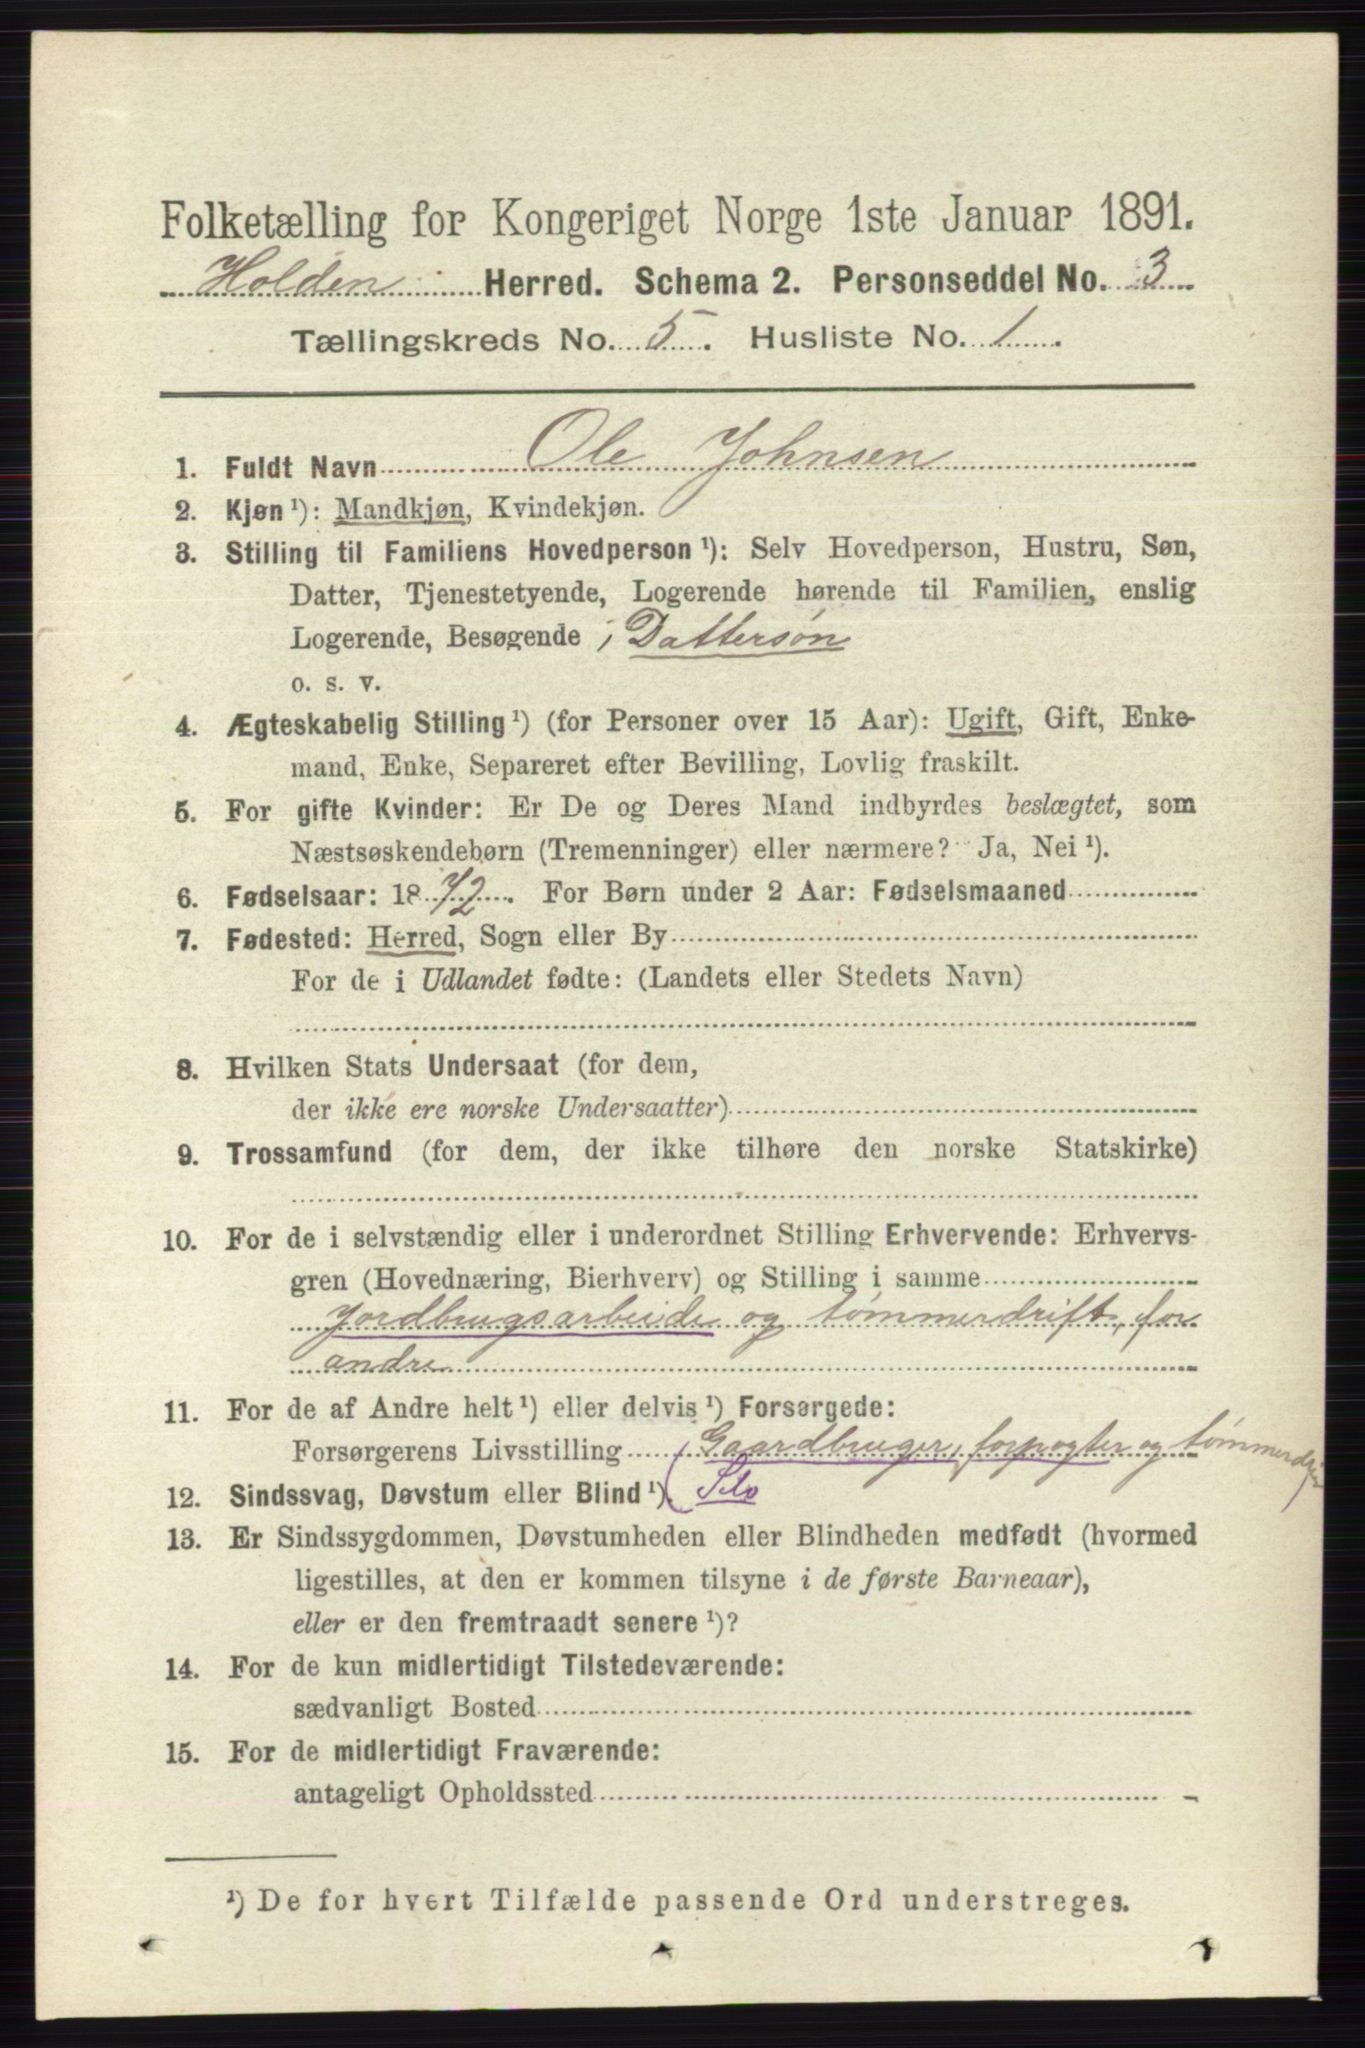 Folketælling for Kongeriget Norge 1ste Januar 1891.
Holden Herred. Schema 2. Personseddel No. 3
Tællingskreds No. 5. Husliste No. 1.
1. Fuldt Navn Ole Johnsen
2. Kjøn ¹): Mandkjøn, Kvindekjøn.
3. Stilling til Familiens Hovedperson ¹): Selv Hovedperson, Hustru, Søn,
Datter, Tjenestetyende, Logerende hørende til Familien, enslig
Logerende, Besøgende, Dattersøn
o. s. v.
4. Ægteskabelig Stilling ¹) (for Personer over 15 Aar): Ugift, Gift, Enke-
mand, Enke, Separeret efter Bevilling, Lovlig fraskilt.
5. For gifte Kvinder: Er De og Deres Mand indbyrdes beslægtet, som
Næstsøskendebørn (Tremenninger) eller nærmere? Ja, Nei ¹).
6. Fødselsaar: 1872. For Børn under 2 Aar: Fødselsmaaned
7. Fødested: Herred, Sogn eller By
For de i Udlandet fødte: (Landets eller Stedets Navn)
8. Hvilken Stats Undersaat (for dem,
der ikke ere norske Undersaatter)
9. Trossamfund (for dem, der ikke tilhøre den norske Statskirke)
10. For de i selvstændig eller i underordnet Stilling Erhvervende: Erhvervs-
gren (Hovednæring, Bierhverv) og Stilling i samme
Jordbrugsarbeide og tømmerdrift, for
andre
11. For de af Andre helt ¹) eller delvis ¹) Forsørgede:
Forsørgerens Livsstilling (Gaardbruger, forpagter og tømmerdrift)
12. Sindssvag, Døvstum eller Blind ¹). Selv
13. Er Sindssygdommen, Døvstumheden eller Blindheden medfødt (hvormed
ligestilles, at den er kommen tilsyne i de første Barneaar),
eller er den fremtraadt senere ¹)?
14. For de kun midlertidigt Tilstedeværende:
sædvanligt Bosted
15. For de midlertidigt Fraværende:
antageligt Opholdssted
¹) De for hvert Tilfælde passende Ord understreges.